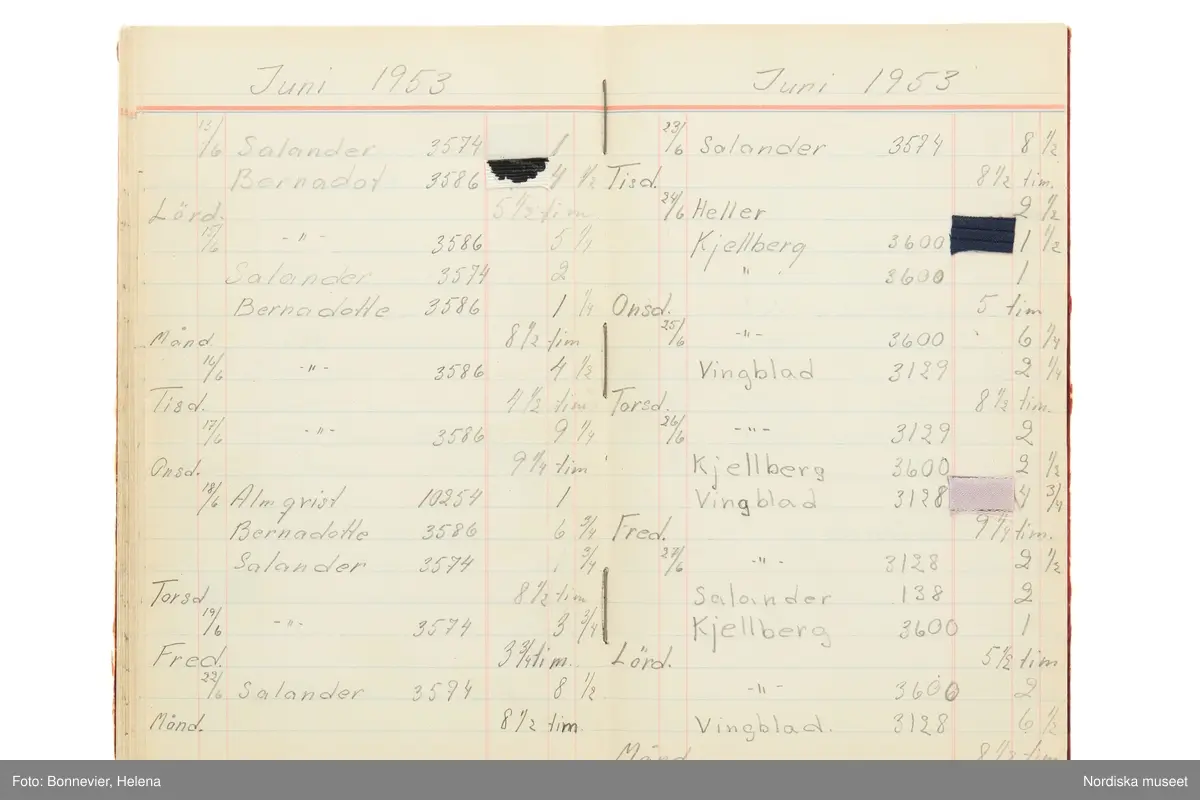 Juni 1953
13/6 Salander 3574 1
Bernadot 3586 4 1/2
Lörd. 5 1/2 tim
15/6 -"- 3586 5 1/4
Salander 3574 2
Bernadotte 3586 1 1/4
Månd. 8 1/2 tim
16/6 -"- 3586 4 1/2
Tisd. 4 1/2 tim.
17/6 -"- 3586 9 1/4
Onsd. 9 1/4 tim
18/6 Almqvist 10254 1
Bernadotte 3586 6 3/4
Salander 3574 3/4
Torsd 8 1/2 tim
19/6 -"- 3574 3 3/4
Fred. 3 3/4 tim.
22/6 Salander 3594 8 1/2
Månd. 8 1/2 tim.
Juni 1953
23/6 Salander 3574 8 1/2
Tisd. 8 1/2 tim.
24/6 Heller 2 1/2
Kjellberg 3600 1 1/2
" 3600 1
Onsd. 5 tim
25/6 -"- 3600 6 1/4
Vingblad 3129 2 1/4
Torsd. 8 1/2 tim.
26/6 -"- 3129 2
Kjellberg 3600 2 1/2
Vingblad 3128 4 3/4
Fred. 9 1/4 tim.
27/6 -"- 3128 2 1/2
Salander 138 2
Kjellberg 3600 1
Lörd. 5 1/2 tim
-"- 3600 2
Vingblad. 3128 6 1/2
Månd 8 1/2 tim
Foto: Bonnevier, Helena
Nordiska museet